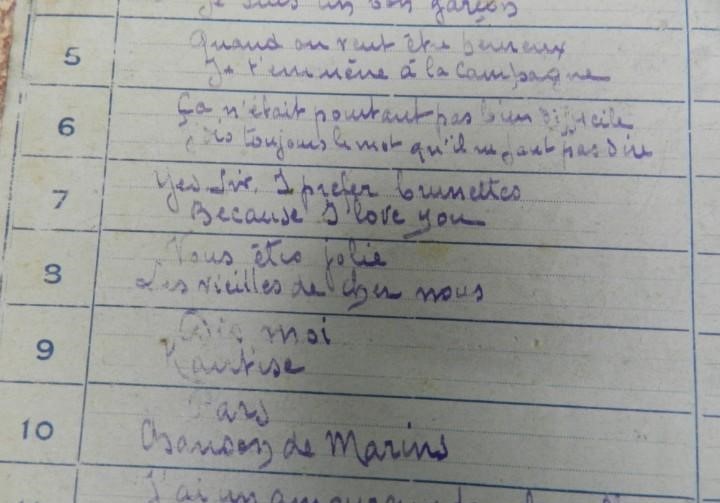 Je suis un bon garçon
5
Quand on veut être heureux
Je t'emmène à la campagne
6
Ça n'était pourtant pas bien difficile
J'dis toujours le mot qu'il ne faut pas dire
7
Yes Sir, I prefer brunettes
Because I love you
8
Vous êtes jolie
Les vieilles de chez nous
9
Dis moi
Hantise
10
Pars
Chanson de Marins
J'ai un amour